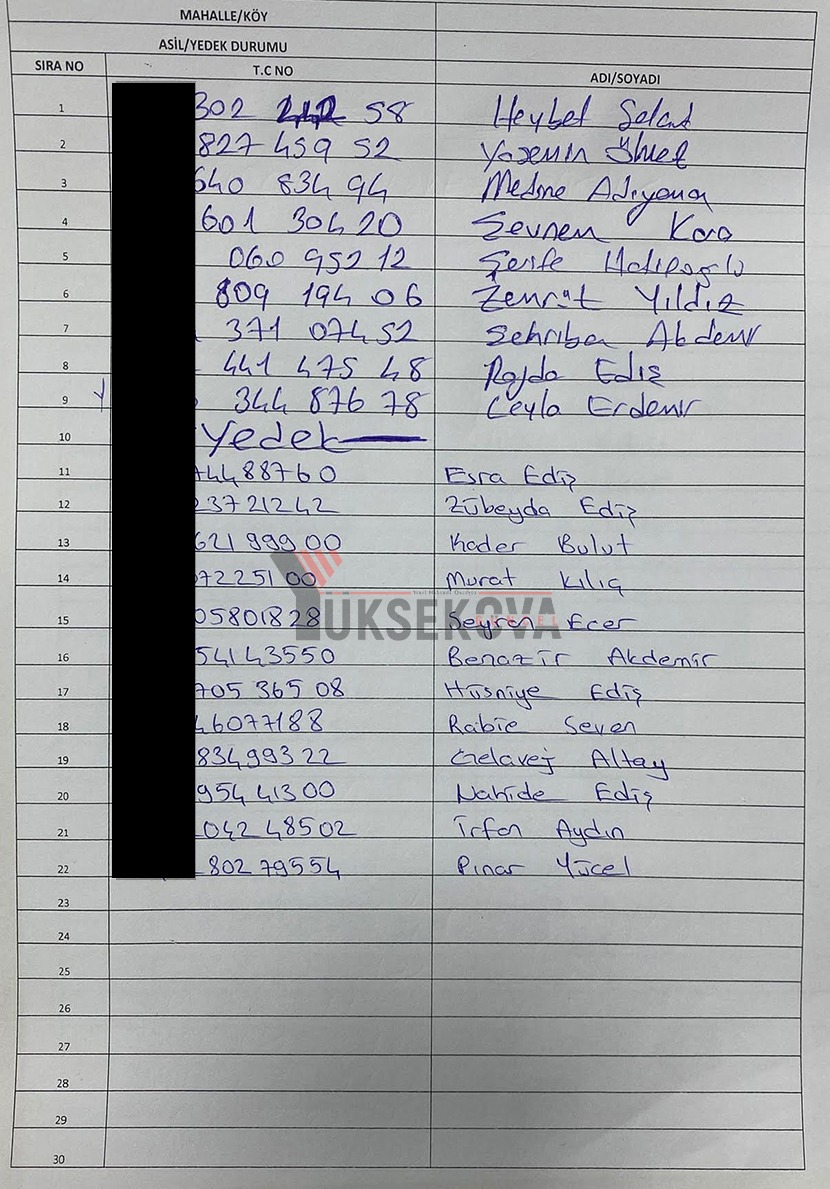 MAHALLE/KÖY
ASİL/YEDEK DURUMU
SIRA NO T.C NO ADI/SOYADI
1 302 242 58 Heybet Selant
2 827 459 52 Yasemin
3 640 834 94 Medine Adıyaman
4 601 304 20 Sevnem Kara
5 060 952 12 Şerife Hatipoğlu
6 809 194 06 Zennat Yıldız
7 371 074 52 Şehriban Akdemir
8 441 475 48 Rojda Ediş
9 344 876 78 Leyla Erdemir
10 Yedek
11 74488760 Esra Ediş
12 23721242 Zübeyda Ediş
13 621 999 00 Kader Bulut
14 07225100 Murat Kılıç
15 05801828 Seyran Ecer
16 54143550 Benazir Akdemir
17 705 365 08 Hüsniye Ediş
18 46077188 Rabie Seven
19 83499322 Gelavej Altay
20 95441300 Nahide Ediş
21 042 48502 İrfan Aydın
22 802 79554 Pınar Yücel
23
24
25
26
27
28
29
30
YÜKSEKOVA